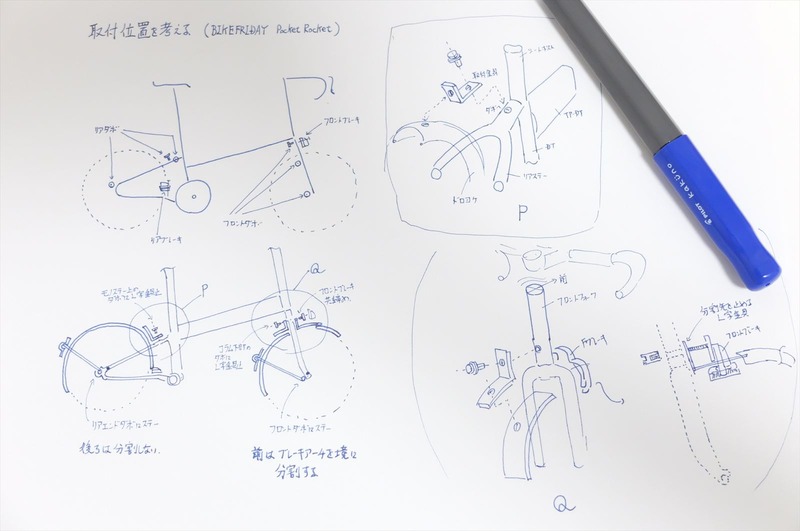 取付位置を考える (BIKEFRIDAY Pocket Rocket)
リアダボ
フロントブレーキ
フロントダボ
リアブレーキ
取付金具
シートポスト
ダボ
リアステー
ドロヨケ
P
モノステー上の
P
Q
フロントブレーキ
リアエンドダボにステー
フロントダボにステー
後ろは分割しない.
前はブレーキアーチを境に
分割する
前
フロントフォーク
Fブレーキ
Q
分割先を止める
L字金具
フロントブレーキ
PILOT kaküno